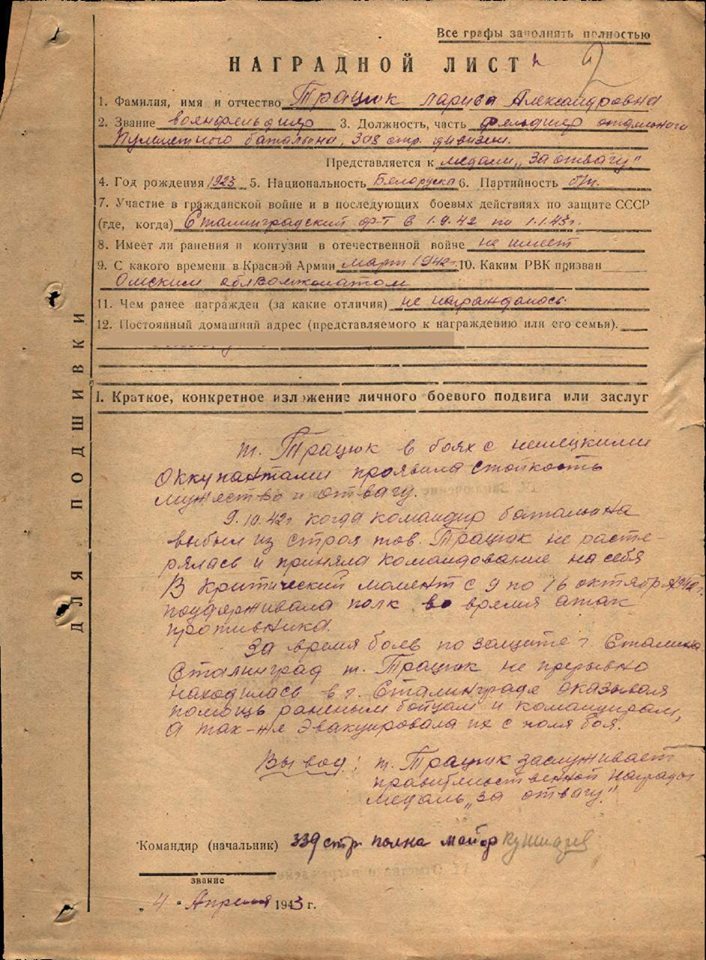 Все графы заполнять полностью
НАГРАДНОЙ ЛИСТ
1. Фамилия, имя и отчество Трацюк Лариса Александровна
2. Звание военфельдшер 3. Должность, часть фельдшер отдельного
Пулеметного батальона, 308 стр. дивизии.
Представляется к медали „За отвагу"
4. Год рождения 1923 5. Национальность Белоруска 6. Партийность б/п.
7. Участие в гражданской войне и в последующих боевых действиях по защите СССР
(где, когда) Сталинградский фр-т с 1.9.42 по 1.1.43 г.
8. Имеет ли ранения и контузии в отечественной войне не имеет
9. С какого времени в Красной Армии март 1942 г. 10. Каким РВК призван
Омским облвоенкоматом
11. Чем ранее награжден (за какие отличия) не награждалась
12. Постоянный домашний адрес (представляемого к награждению или его семьи).
I. Краткое, конкретное изложение личного боевого подвига или заслуг
т. Трацюк в боях с немецкими
оккупантами проявила стойкость
мужество и отвагу.
9.10.42 г. когда командир батальона
выбыл из строя тов. Трацюк не расте-
рялась и приняла командование на себя
В критический момент с 9 по 16 октября 1942 г.
поддерживала полк во время атак
противника.
За время боев по защите г.
Сталинград т. Трацюк не прерывно
находилась в г. Сталинграде оказывая
помощь раненым бойцам и командирам,
а так-же эвакуировала их с поля боя.
Вывод: т. Трацюк заслуживает
правительственной награды
медаль „За отвагу"
Командир (начальник) 339 стр. полка майор
звание
„4" Апреля 1943 г.
ДЛЯ ПОДШИВКИ